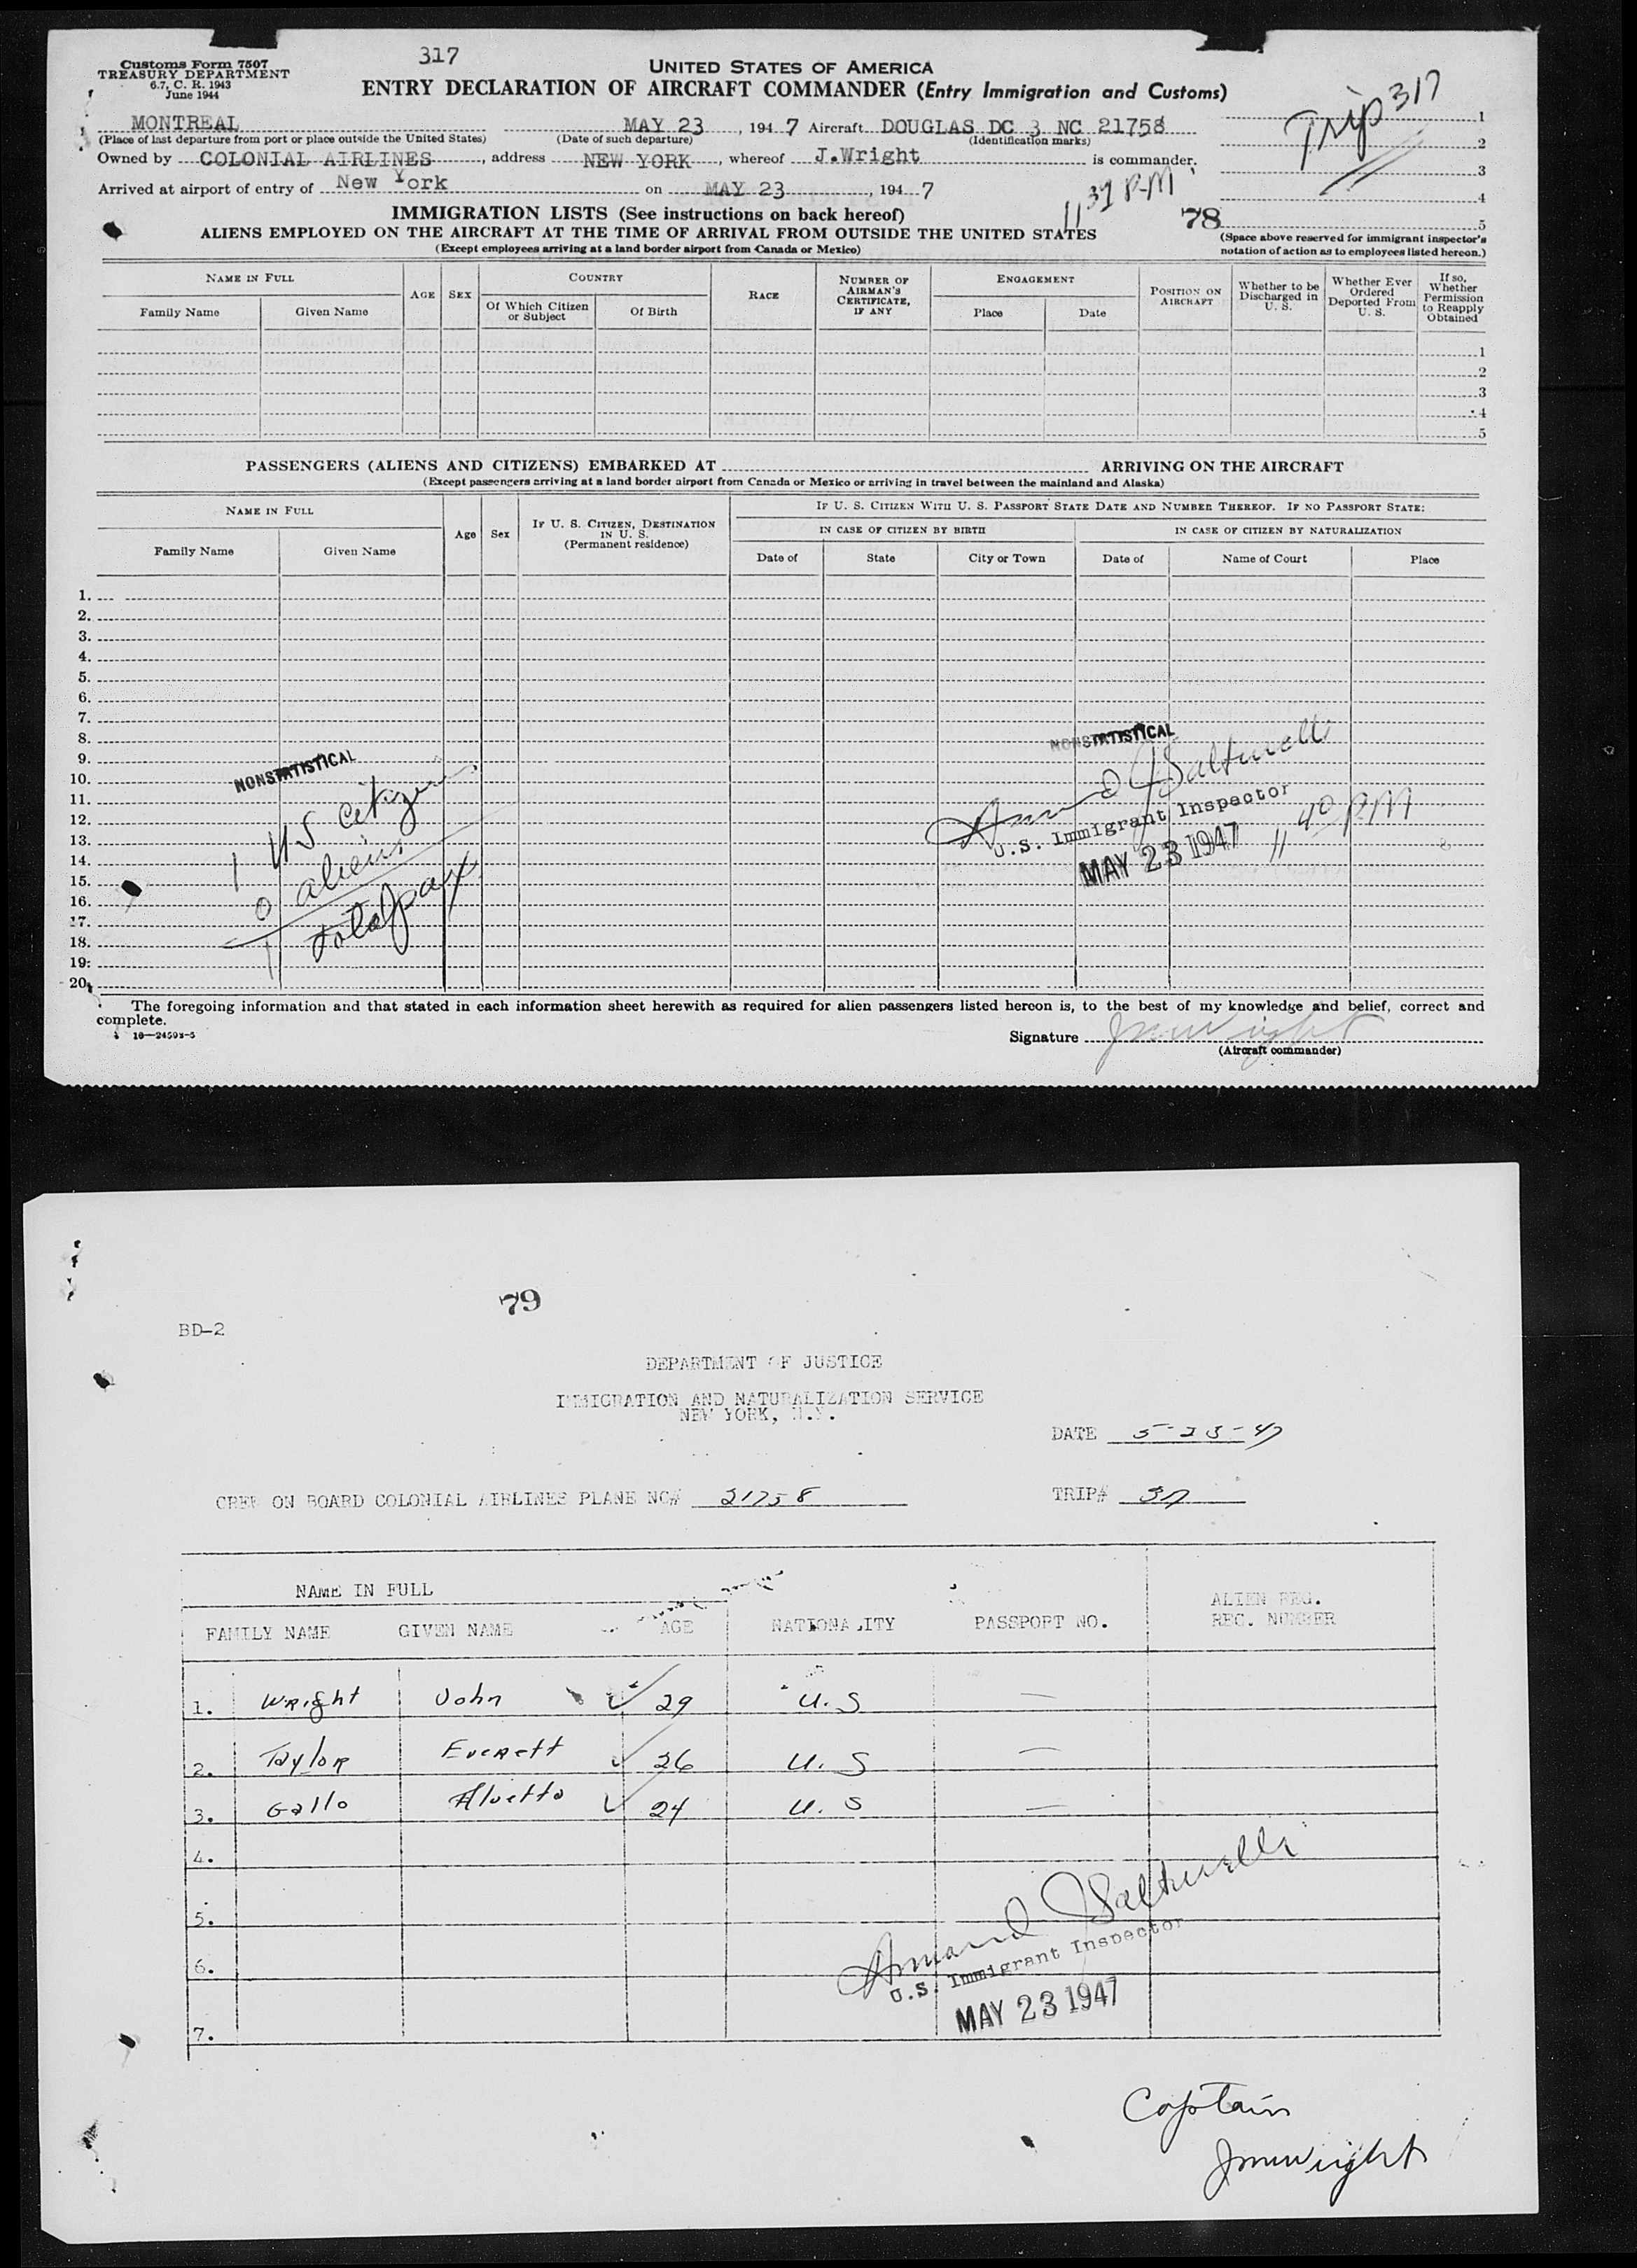 Customs Form 7507
TREASURY DEPARTMENT
6.7, C. R. 1943
June 1944
317
UNITED STATES OF AMERICA
ENTRY DECLARATION OF AIRCRAFT COMMANDER (Entry Immigration and Customs)
Trip 317
MONTREAL MAY 23, 1947 Aircraft DOUGLAS DC 3 NC 21758
(Place of last departure from port or place outside the United States) (Date of such departure) (Identification marks)
Owned by COLONIAL AIRLINES, address NEW YORK, whereof J.Wright is commander.
Arrived at airport of entry of New York on MAY 23, 1947
11 37 PM
1
2
3
4
5
78
IMMIGRATION LISTS (See instructions on back hereof)
ALIENS EMPLOYED ON THE AIRCRAFT AT THE TIME OF ARRIVAL FROM OUTSIDE THE UNITED STATES
(Except employees arriving at a land border airport from Canada or Mexico)
(Space above reserved for immigrant inspector's
notation of action as to employees listed hereon.)
NAME IN FULL
Family Name Given Name
AGE SEX
COUNTRY
Of Which Citizen or Subject Of Birth
RACE
NUMBER OF AIRMAN'S CERTIFICATE, IF ANY
ENGAGEMENT
Place Date
POSITION ON AIRCRAFT
Whether to be Discharged in U. S.
Whether Ever Ordered Deported From U. S.
If so, Whether Permission to Reapply Obtained
1
2
3
4
5
PASSENGERS (ALIENS AND CITIZENS) EMBARKED AT ARRIVING ON THE AIRCRAFT
(Except passengers arriving at a land border airport from Canada or Mexico or arriving in travel between the mainland and Alaska)
NAME IN FULL
Family Name Given Name
Age Sex
IF U. S. CITIZEN, DESTINATION IN U. S.
(Permanent residence)
IF U. S. CITIZEN WITH U. S. PASSPORT STATE DATE AND NUMBER THEREOF. IF NO PASSPORT STATE:
IN CASE OF CITIZEN BY BIRTH IN CASE OF CITIZEN BY NATURALIZATION
Date of State City or Town Date of Name of Court Place
1.
2.
3.
4.
5.
6.
7.
8.
9.
10.
11.
12.
13.
14.
15.
16.
17.
18.
19.
20.
NONSTATISTICAL
1 US Citizen
0 aliens
1 total pax
NONSTATISTICAL
Armand J Saltwell
U.S. Immigrant Inspector
MAY 23 1947
11 40 PM
The foregoing information and that stated in each information sheet herewith as required for alien passengers listed hereon is, to the best of my knowledge and belief, correct and
complete.
Signature JmWright
(Aircraft commander)
79
BD-2
DEPARTMENT OF JUSTICE
IMMIGRATION AND NATURALIZATION SERVICE
NEW YORK, N.Y.
DATE 5-23-47
CREW ON BOARD COLONIAL AIRLINES PLANE NC# 21758 TRIP# 317
NAME IN FULL
FAMILY NAME GIVEN NAME AGE NATIONALITY PASSPORT NO. ALIEN REG. REC. NUMBER
1. Wright John 29 U.S —
2. Taylor Everett 26 U.S —
3. Gallo Alvetta 24 U.S —
4.
5.
6.
7.
Armand J Saltwell
U.S. Immigrant Inspector
MAY 23 1947
Captain
JmWright